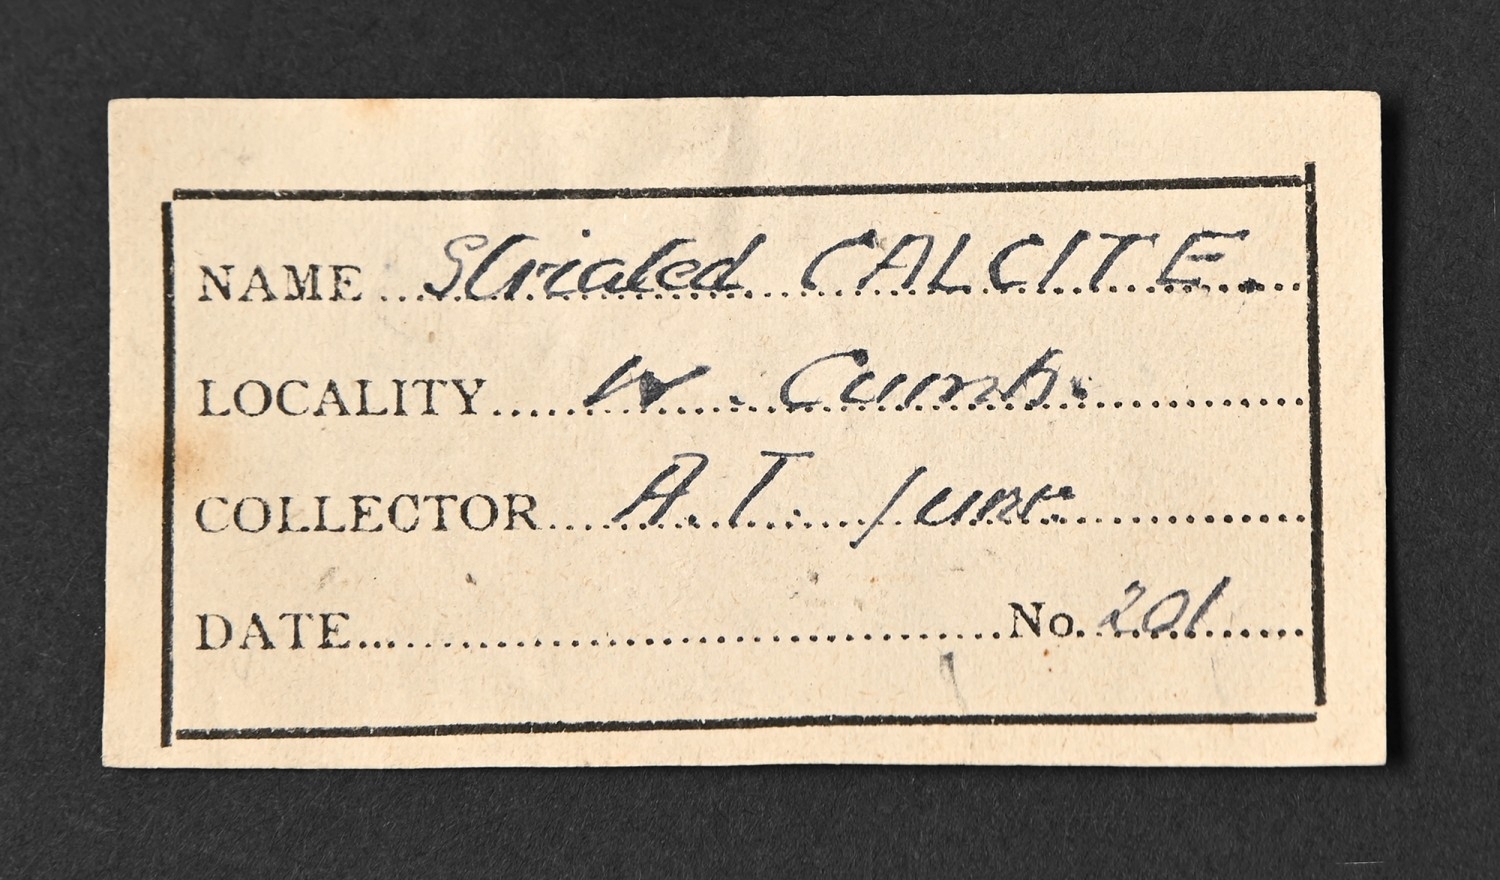 NAME Striated CALCITE.
LOCALITY W. Cumb.
COLLECTOR A.T.
DATE No. 201